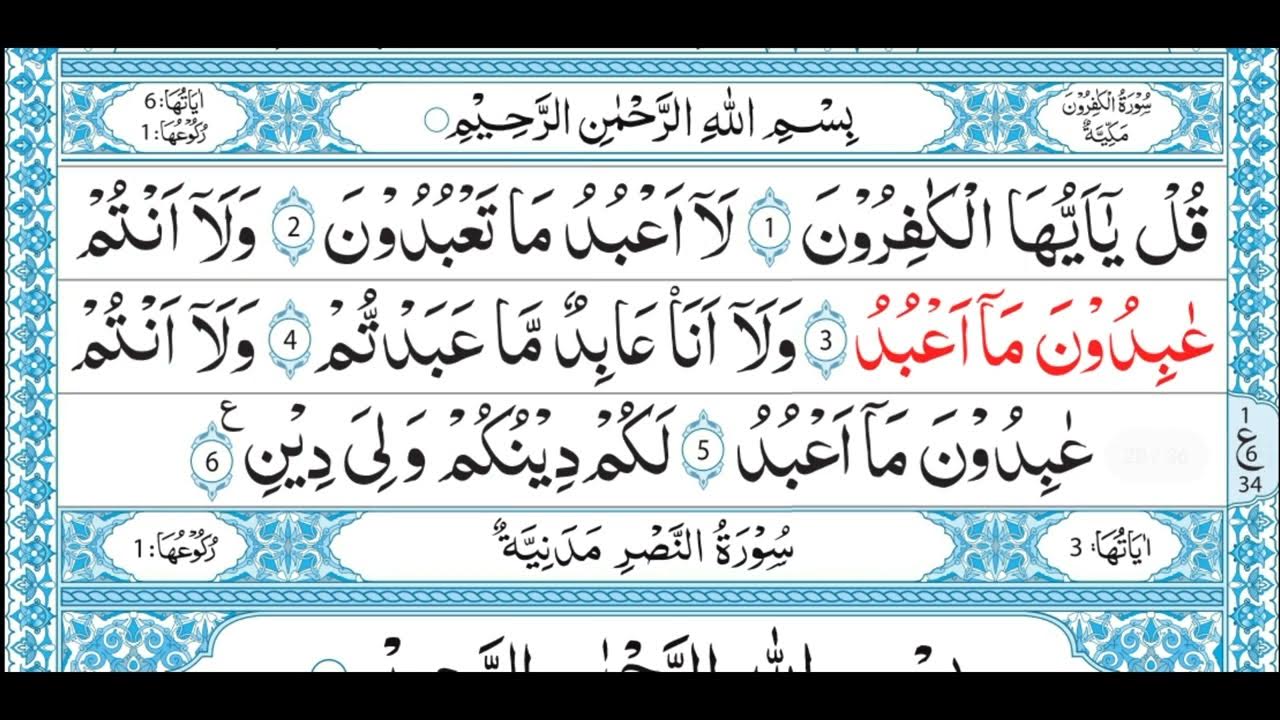 سُوْرَةُ الْكٰفِرُوْنَ مَكِّيَّةٌ
بِسْمِ اللّٰهِ الرَّحْمٰنِ الرَّحِيْمِ
اٰيَاتُهَا: 6
رُكُوْعُهَا: 1
قُلْ يٰۤاَيُّهَا الْكٰفِرُوْنَ 1 لَاۤ اَعْبُدُ مَا تَعْبُدُوْنَ 2 وَلَاۤ اَنْتُمْ
عٰبِدُوْنَ مَاۤ اَعْبُدُ 3 وَلَاۤ اَنَا۠ عَابِدٌ مَّا عَبَدْتُّمْ 4 وَلَاۤ اَنْتُمْ
عٰبِدُوْنَ مَاۤ اَعْبُدُ 5 لَكُمْ دِيْنُكُمْ وَلِىَ دِيْنِ ع 6
1
ع
6
34
اٰيَاتُهَا: 3
سُوْرَةُ النَّصْرِ مَدَنِيَّةٌ
رُكُوْعُهَا: 1
بِسْمِ اللّٰهِ الرَّحْمٰنِ الرَّحِيْمِ